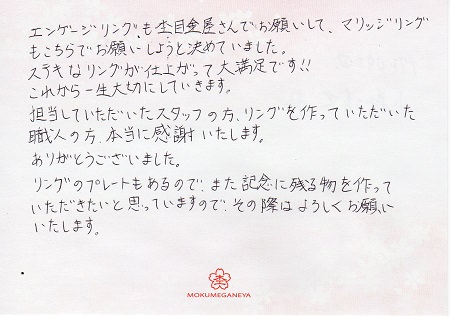 エンゲージリングも杢目金屋さんでお願いして、マリッジリング
もこちらでお願いしようと決めていました。
ステキなリングが仕上がって大満足です!!
これから一生大切にしていきます。
担当していただいたスタッフの方、リングを作っていただいた
職人の方、本当に感謝いたします。
ありがとうございました。
リングのプレートもあるので、また記念に残る物を作って
いただきたいと思っていますので、その際はよろしくお願い
いたします。
杢
MOKUMEGANEYA